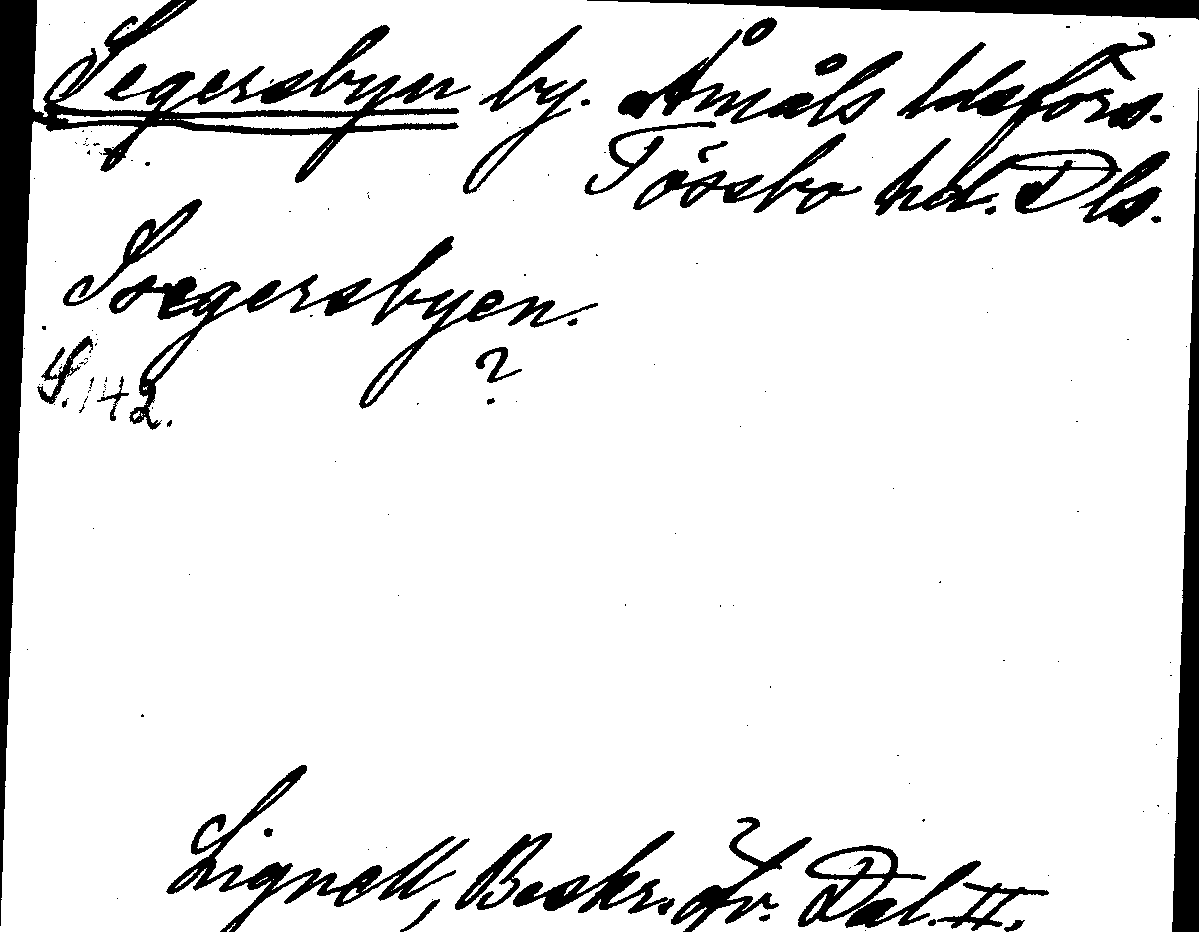 Segersbyn by. Åmåls ldsförs.
Tössbo hd. Dls.
Sægersbyen.
?
S. 142.
Lignell, Beskr. öfv. Dal. II.